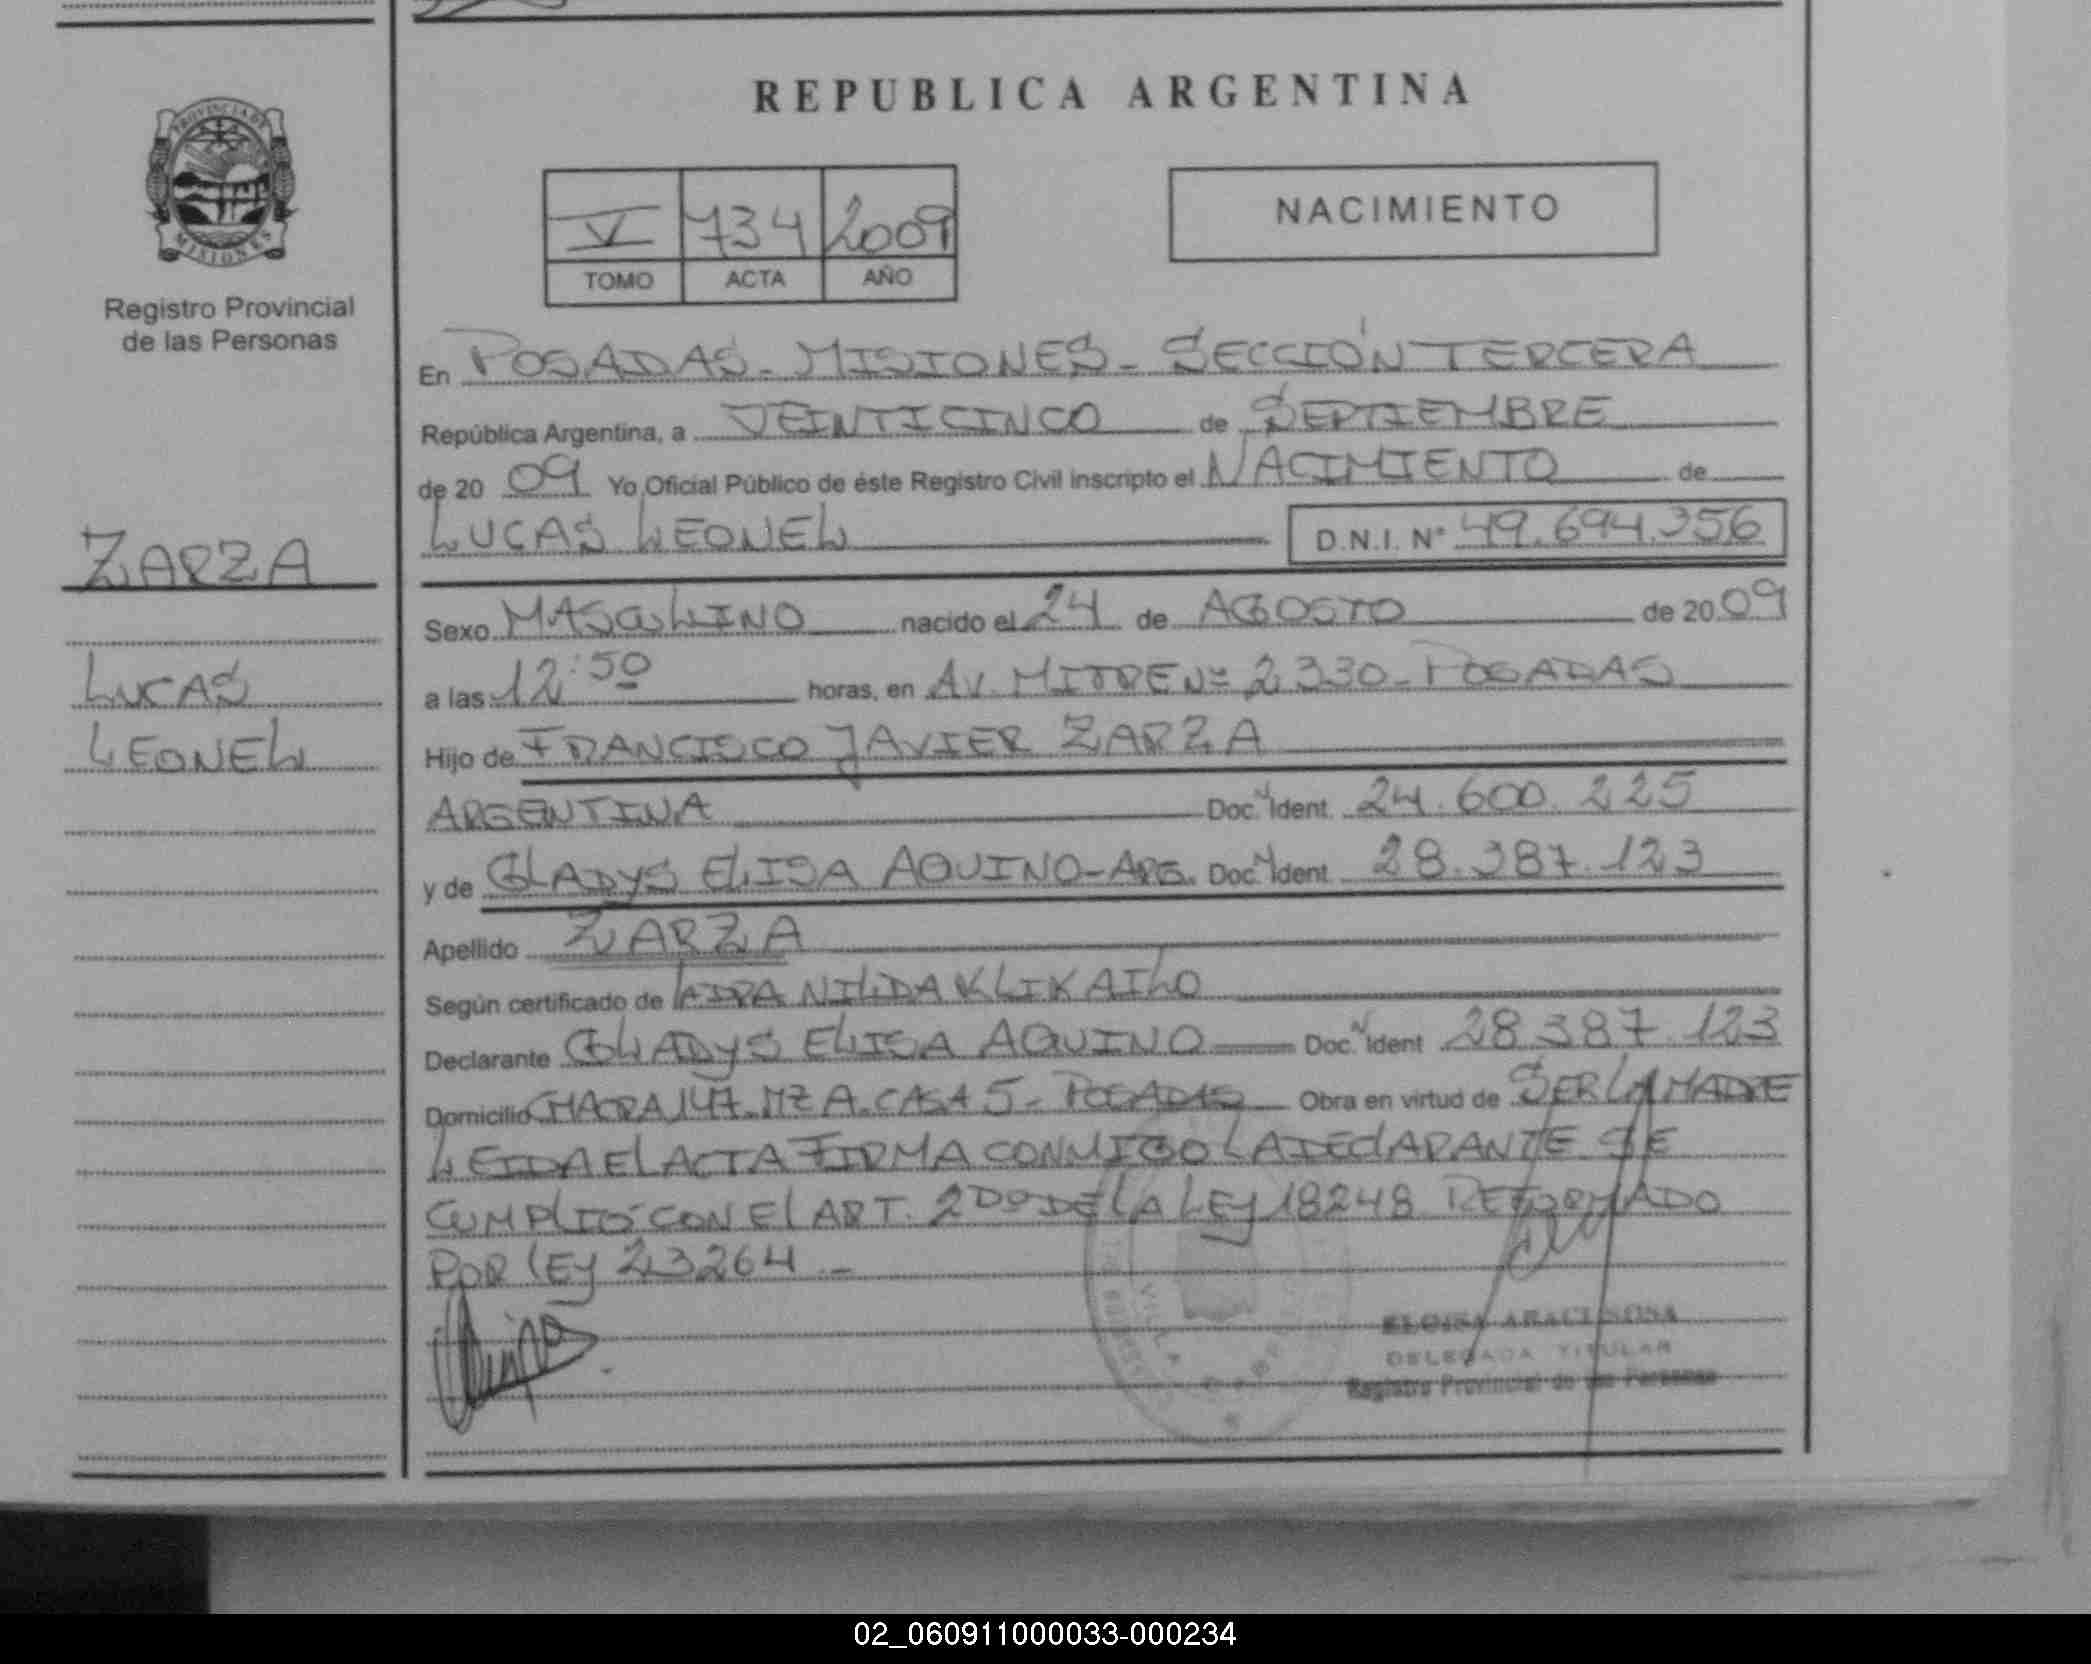 REPUBLICA ARGENTINA
PROVINCIA DE
MISIONES
Registro Provincial
de las Personas
V 734 2009
TOMO ACTA AÑO
NACIMIENTO
En POSADAS - MISIONES - SECCIÓN TERCERA
República Argentina, a VEINTICINCO de SEPTIEMBRE
de 20 09 Yo Oficial Público de éste Registro Civil inscripto el NACIMIENTO de
LUCAS LEONEL D.N.I. Nº 49.694.356
ZARZA
LUCAS
LEONEL
Sexo MASCULINO nacido el 24 de AGOSTO de 20 09
a las 12:50 horas, en AV. MITRE Nº 2330 - POSADAS
Hijo de FRANCISCO JAVIER ZARZA
ARGENTINA Doc. Ident. 24.600.225
y de GLADYS ELISA AQUINO - ARG. Doc. Ident. 28.387.123
Apellido ZARZA
Según certificado de NILDA KLIKAILO
Declarante GLADYS ELISA AQUINO Doc. Ident 28.387.123
Domicilio CHACRA 147. MZ A. CASA 5 - POSADAS Obra en virtud de SER LA MADRE
LEIDA EL ACTA FIRMA CONMIGO LA DECLARANTE SE
CUMPLIÓ CON EL ART. 2DO DE LA LEY 18248 REFORMADO
POR LEY 23264 -
VILLA
ELOISA SOSA
DELEGADA TITULAR
Registro Provincial de las Personas
02_060911000033-000234